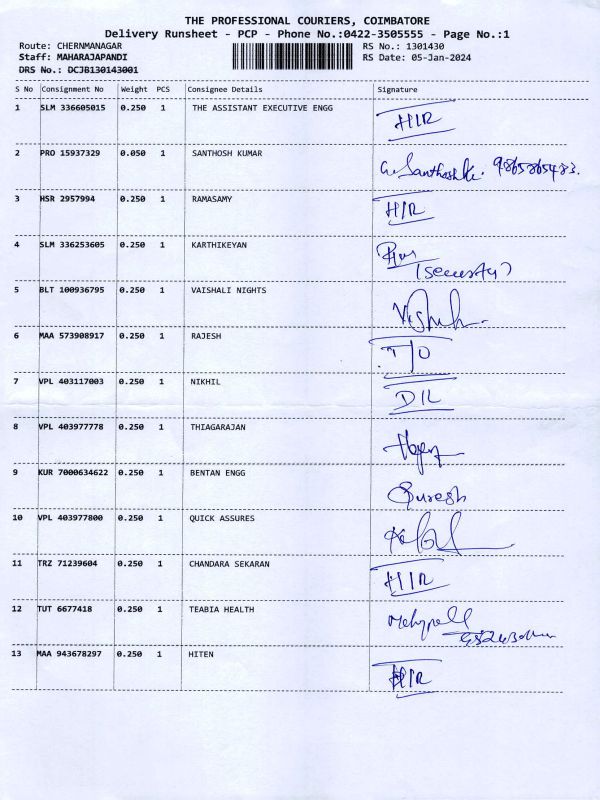 THE PROFESSIONAL COURIERS, COIMBATORE
Delivery Runsheet - PCP - Phone No.:0422-3505555 - Page No.:1
Route: CHERNMANAGAR RS No.: 1301430
Staff: MAHARAJAPANDI RS Date: 05-Jan-2024
DRS No.: DCJB130143001
S No Consignment No Weight PCS Consignee Details Signature
1 SLM 336605015 0.250 1 THE ASSISTANT EXECUTIVE ENGG H/R
2 PRO 15937329 0.050 1 SANTHOSH KUMAR G. Santhosh K.
3 HSR 2957994 0.250 1 RAMASAMY H/R
4 SLM 336253605 0.250 1 KARTHIKEYAN
(Security)
5 BLT 100936795 0.250 1 VAISHALI NIGHTS
6 MAA 573908917 0.250 1 RAJESH T/O
7 VPL 403117003 0.250 1 NIKHIL D/L
8 VPL 403977778 0.250 1 THIAGARAJAN
9 KUR 7000634622 0.250 1 BENTAN ENGG Suresh
10 VPL 403977800 0.250 1 QUICK ASSURES
11 TRZ 71239604 0.250 1 CHANDARA SEKARAN H/R
12 TUT 6677418 0.250 1 TEABIA HEALTH
13 MAA 943678297 0.250 1 HITEN H/R